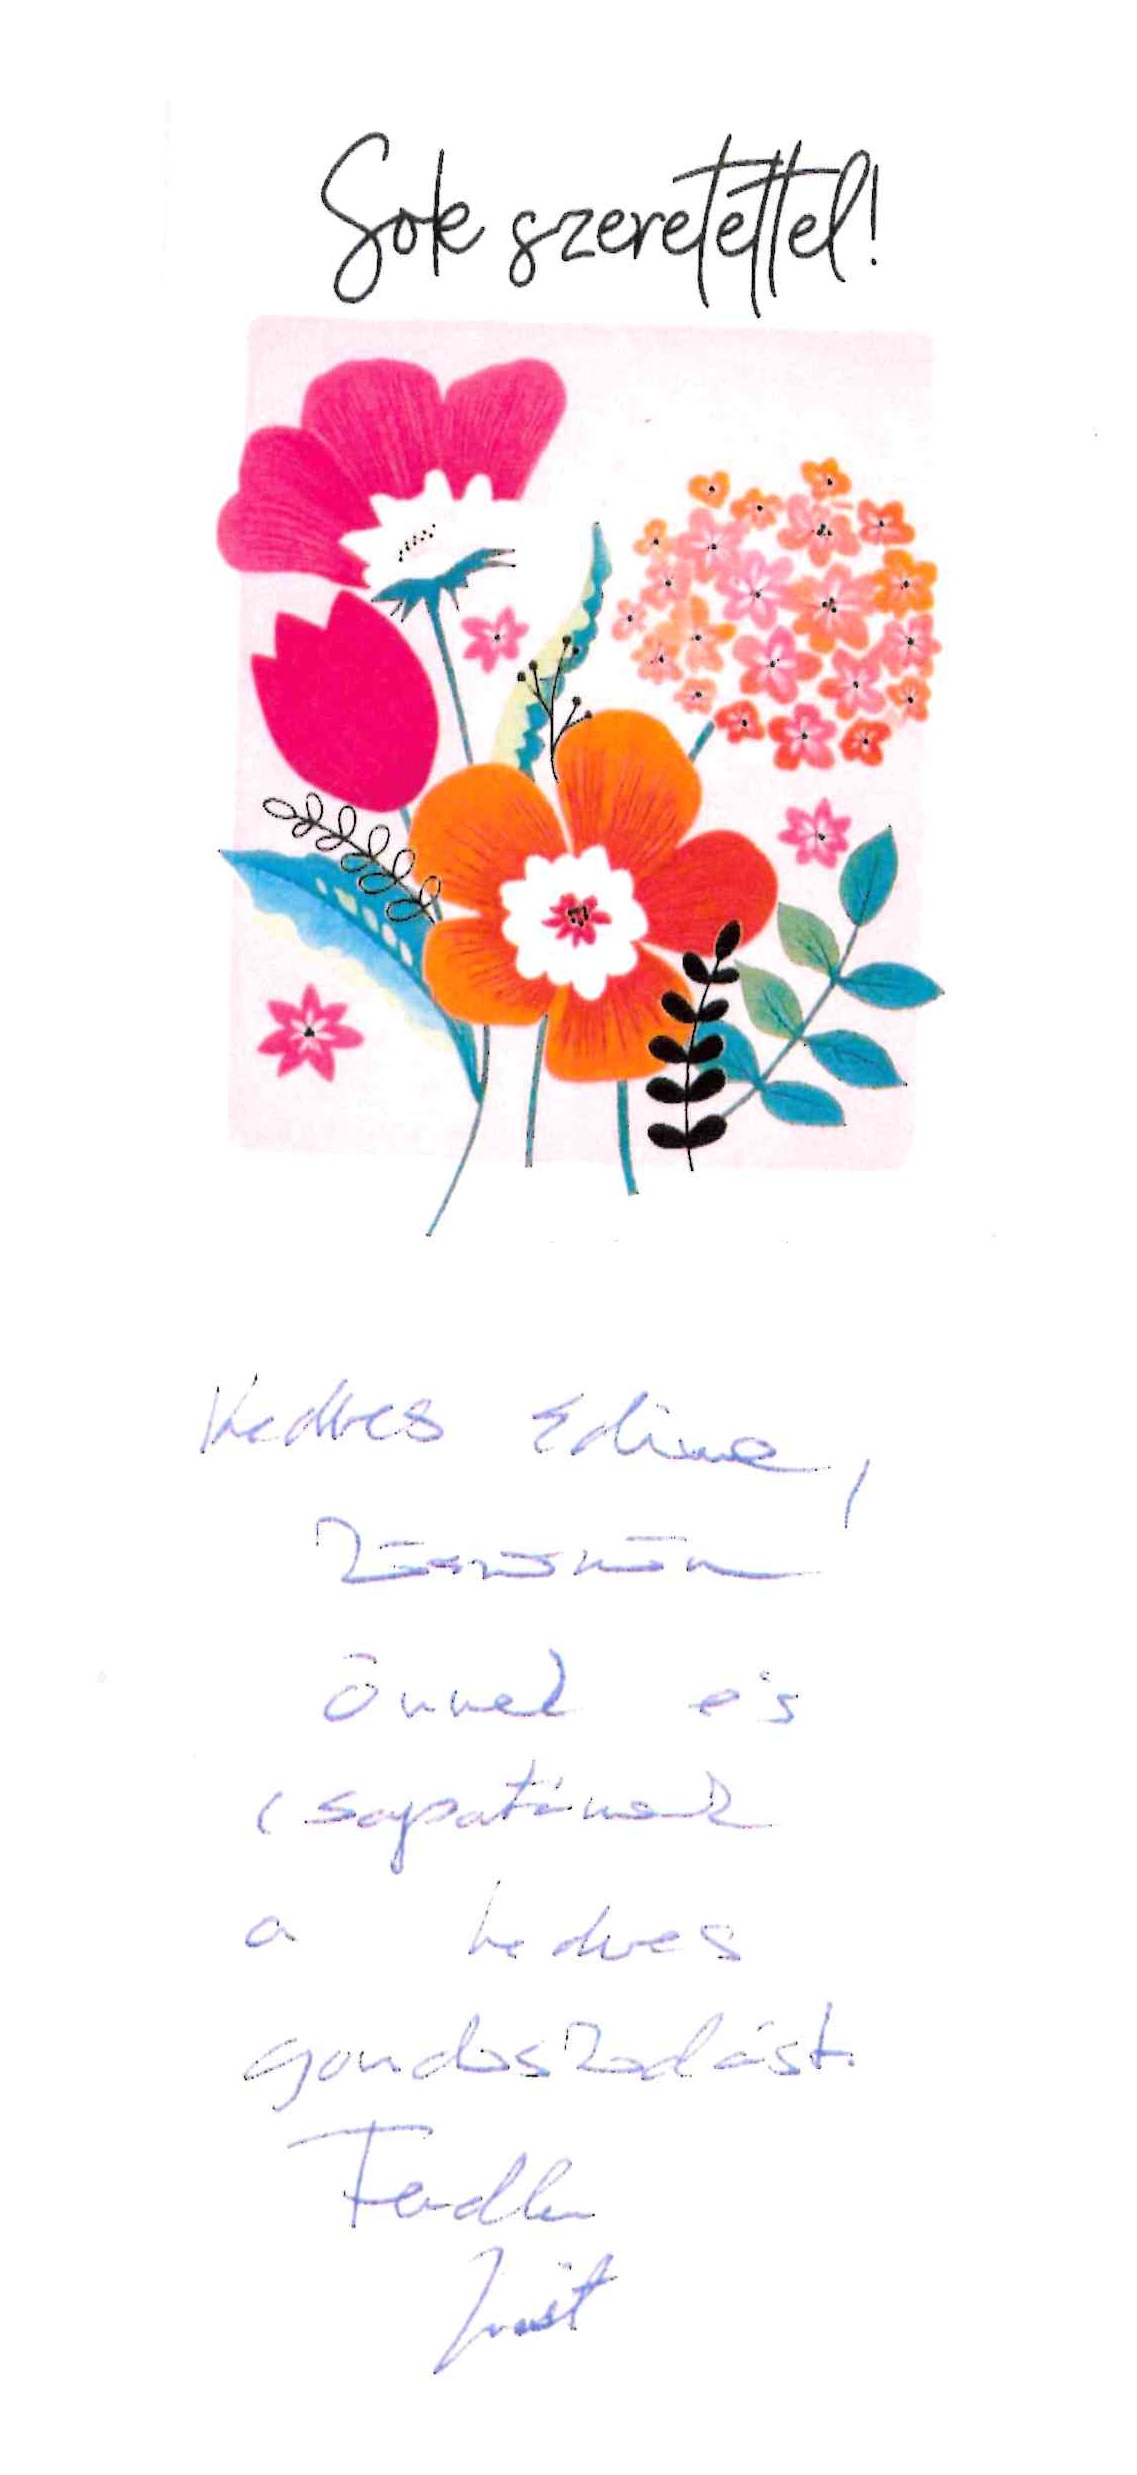 Sok szeretettel!
Kedves Edina,
Köszönöm
Önnek és
csapatának
a kedves
gondoskodást.
Judit